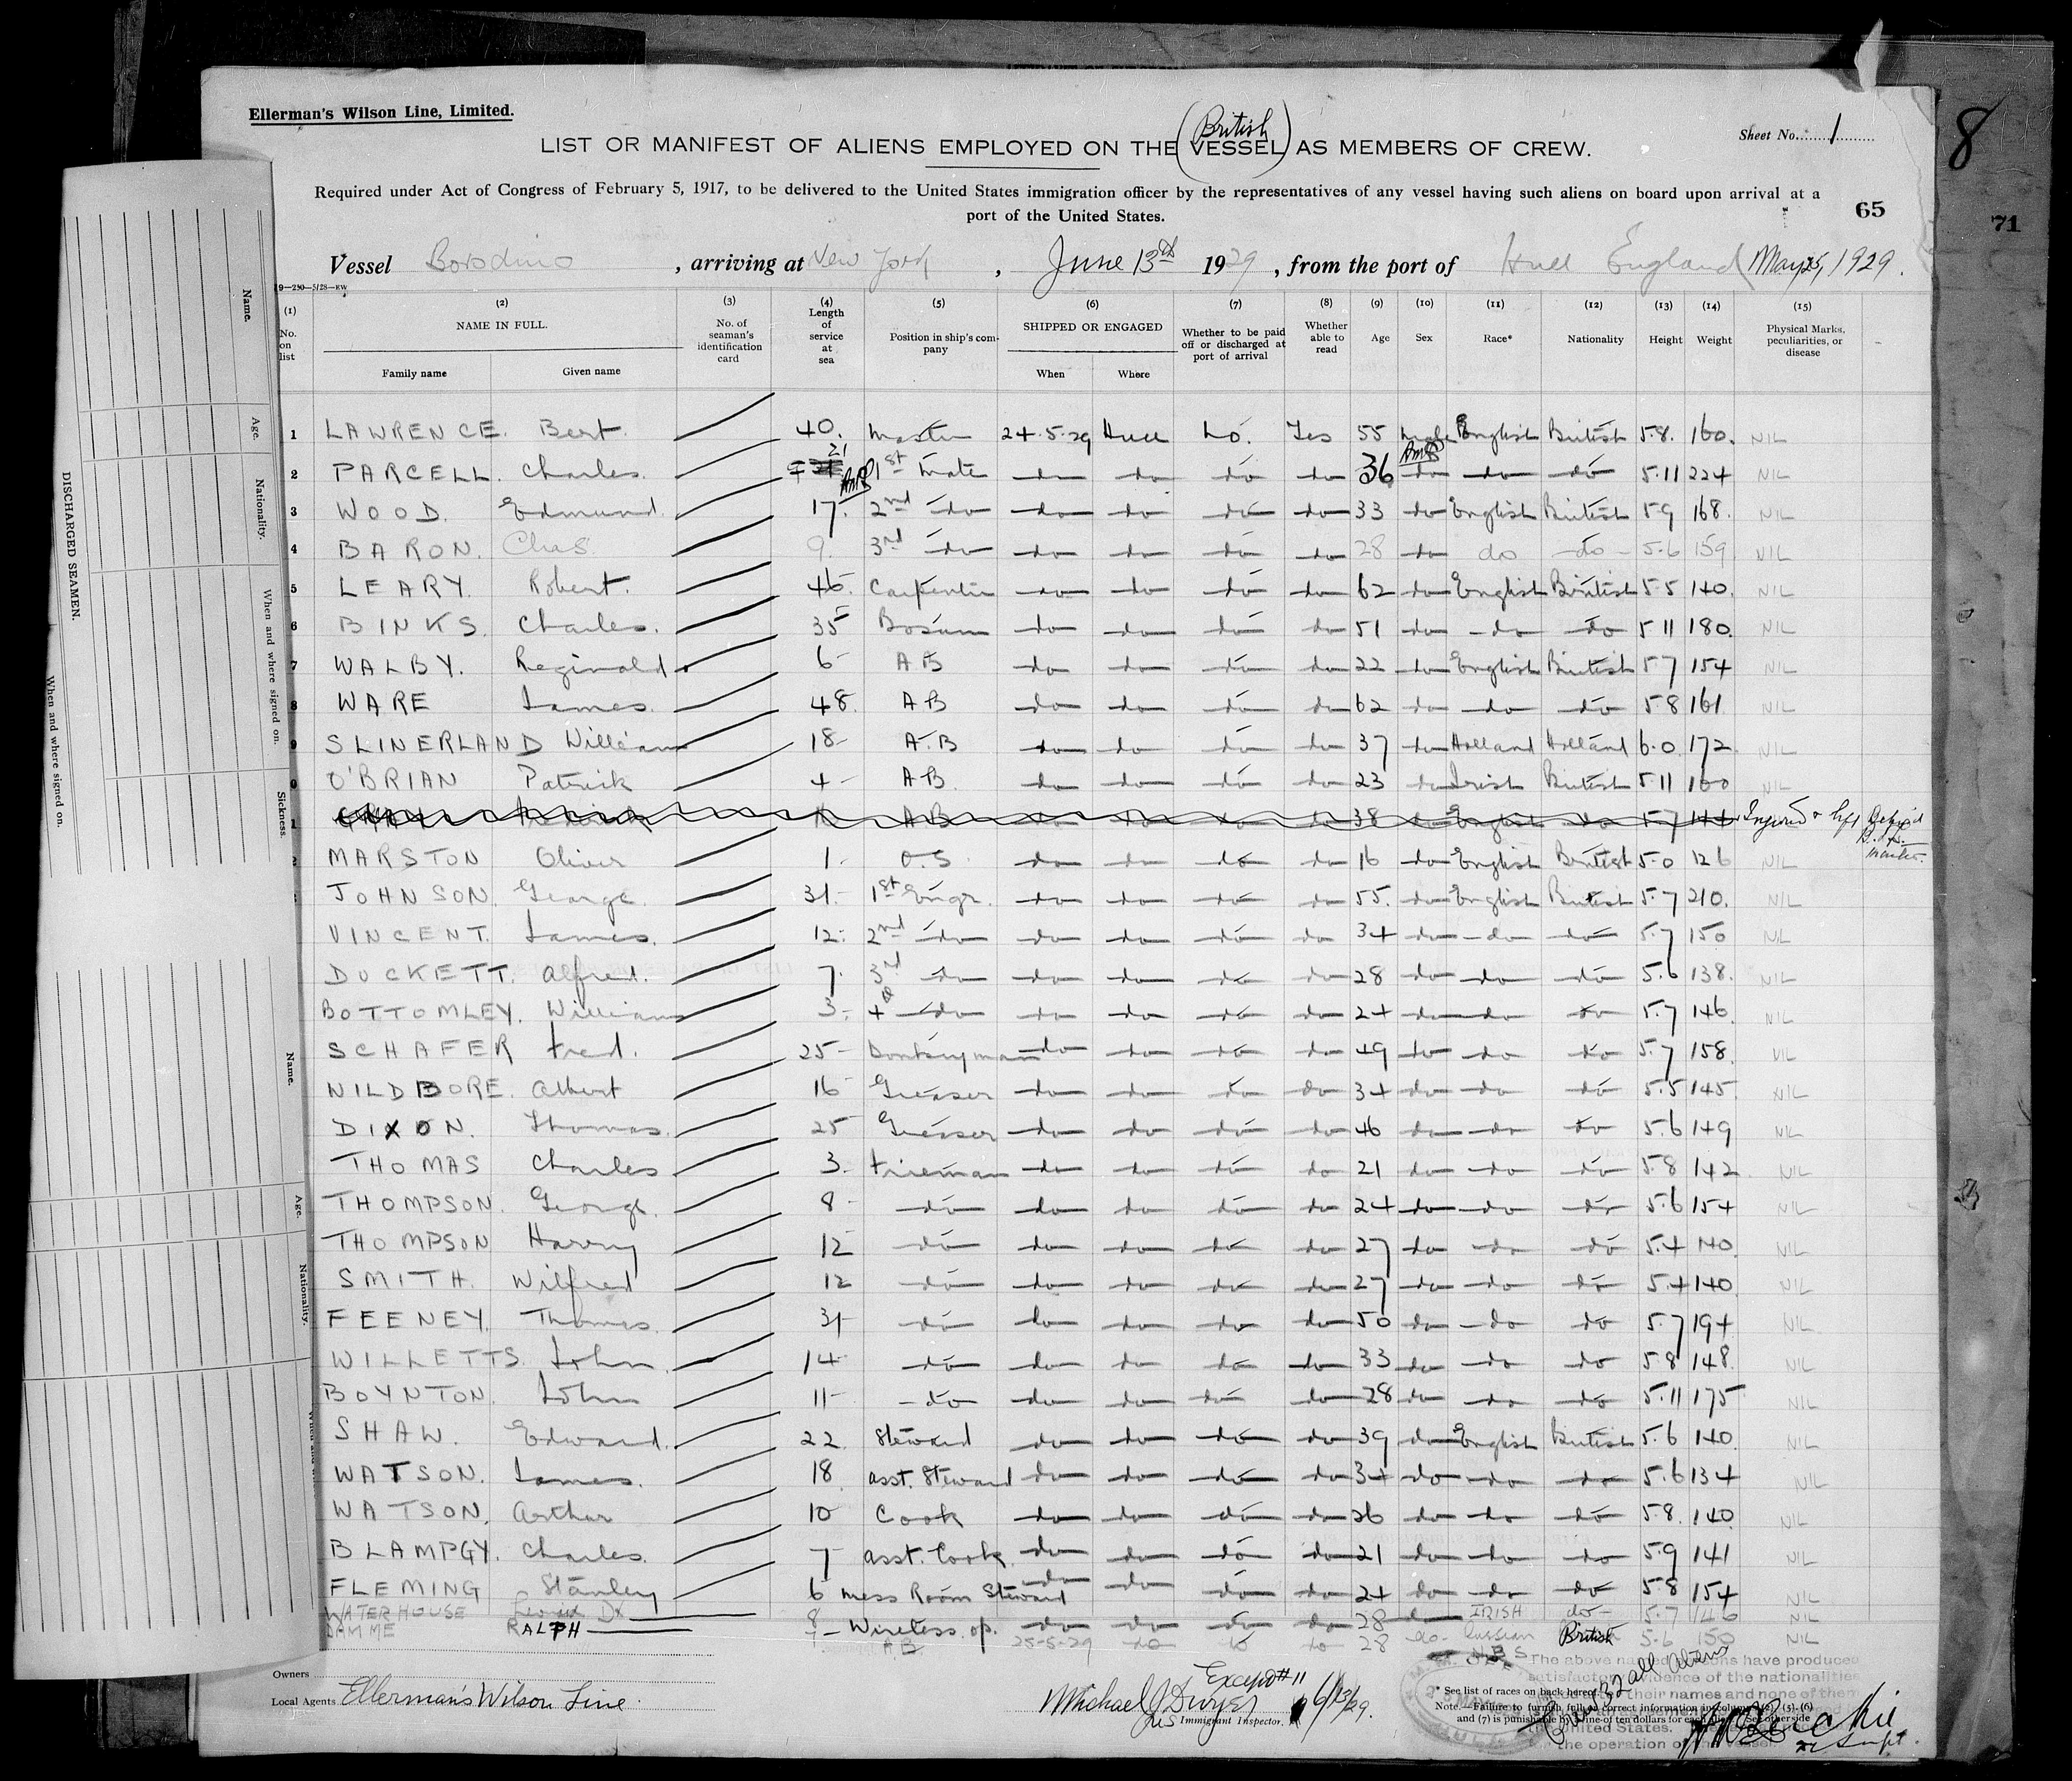 Ellerman's Wilson Line, Limited.
8
Sheet No. 1
(British)
LIST OR MANIFEST OF ALIENS EMPLOYED ON THE VESSEL AS MEMBERS OF CREW.
Required under Act of Congress of February 5, 1917, to be delivered to the United States immigration officer by the representatives of any vessel having such aliens on board upon arrival at a
port of the United States.
65
71
Vessel Borodino, arriving at New York, June 13th 1929, from the port of Hull England May 25, 1929.
(1) (2) (3) (4) (5) (6) (7) (8) (9) (10) (11) (12) (13) (14) (15)
No. on list NAME IN FULL. No. of seaman's identification card Length of service at sea Position in ship's company SHIPPED OR ENGAGED Whether to be paid off or discharged at port of arrival Whether able to read Age Sex Race* Nationality Height Weight Physical Marks, peculiarities, or disease
Family name Given name When Where
1 LAWRENCE. Bert. 40. Master 24.5.29 Hull No. Yes 55 Male English British 5.8. 160. NIL
2 PARCELL. Charles. 21 1st Mate do do do do 36 do do do 5.11 224 NIL
3 WOOD. Edmund. 17. 2nd do do do do do 33 do English British 5 9 168. NIL
4 BARON. Chas. 9. 3rd do do do do do 28 do do do 5.6 159 NIL
5 LEARY. Robert. 46. Carpenter do do do do 62 do English British 5.5 140. NIL
6 BINKS. Charles. 35 Bosun do do do do 51 do do do 5 11 180. NIL
7 WALBY. Reginald. 6 AB do do do do 22 do English British 5 7 154 NIL
8 WARE James. 48. AB do do do do 62 do do do 5 8 161 NIL
9 SLINERLAND William 18 A.B do do do do 37 do Holland Holland 6.0. 172 NIL
0 O'BRIAN Patrick 4 AB do do do do 23 do Irish British 5.11 160 NIL
AB 38 English do 5 7 144 Injured & left
MARSTON Oliver 1. O.S. do do do do 16 do English British 5.0 126 NIL
JOHNSON. George. 31. 1st Engr. do do do do 55. do English British 5.7 210. NIL
VINCENT. James. 12. 2nd do do do do do 34 do do do 5.7 150 NIL
DUCKETT. Alfred. 7. 3rd do do do do do 28 do do do 5.6 138. NIL
BOTTOMLEY. William 3. 4th do do do do do 24 do do do 5.7 146. NIL
SCHAFER Fred. 25 Donkeyman do do do do 49 do do do 5.7 158. NIL
NILDBORE. Albert 16 Greaser do do do do 34 do do do 5.5 145. NIL
DIXON. Thomas. 25 Greaser do do do do 46 do do do 5.6 149 NIL
THOMAS Charles 3. Fireman do do do do 21 do do do 5.8 142 NIL
THOMPSON. George. 8 do do do do do 24 do do do 5.6 154 NIL
THOMPSON Harry 12 do do do do do 27 do do do 5.4 140. NIL
SMITH. Wilfred 12 do do do do do 27 do do do 5.4 140 NIL
FEENEY. Thomas. 31 do do do do do 50 do do do 5.7 194 NIL
WILLETTS. John. 14 do do do do do 33 do do do 5 8 148. NIL
BOYNTON. John 11 do do do do do 28 do do do 5.11 175 NIL
SHAW. Edward. 22. Steward do do do do 39 do English British 5.6 140. NIL
WATSON. James. 18. asst. Steward do do do do 34 do do do 5.6 134 NIL
WATSON. Arthur 10 Cook do do do do 26 do do do 5.8. 140. NIL
BLAMPGY. Charles. 7 asst. Cook. do do do do 21 do do do 5.9 141 NIL
FLEMING Stanley 6 Mess Room Steward do do do do 24 do do do 5.8 154 NIL
WATERHOUSE 8 Wireless op. do do do do 28 do IRISH do 5.7 146 NIL
DAMME RALPH AB 25-5-29 do do do 28 do Russian British 5.6 150 NIL
The above named persons have produced
satisfactory evidence of the nationalities
their names and none of them
Owners
Local Agents Ellerman's Wilson Line.
Except #11
Michael J Dwyer 6/13/29.
Immigrant Inspector.
* See list of races on back hereof.
Note.—Failure to furnish full or correct information in columns (2), (5), (6)
and (7) is punishable by a fine of ten dollars for each alien. See other side
United States.
the operation of the vessel.
DISCHARGED SEAMEN.
Name. Age. Nationality. When and where signed on. Sickness.
When and where signed on.
Name. Age. Nationality.